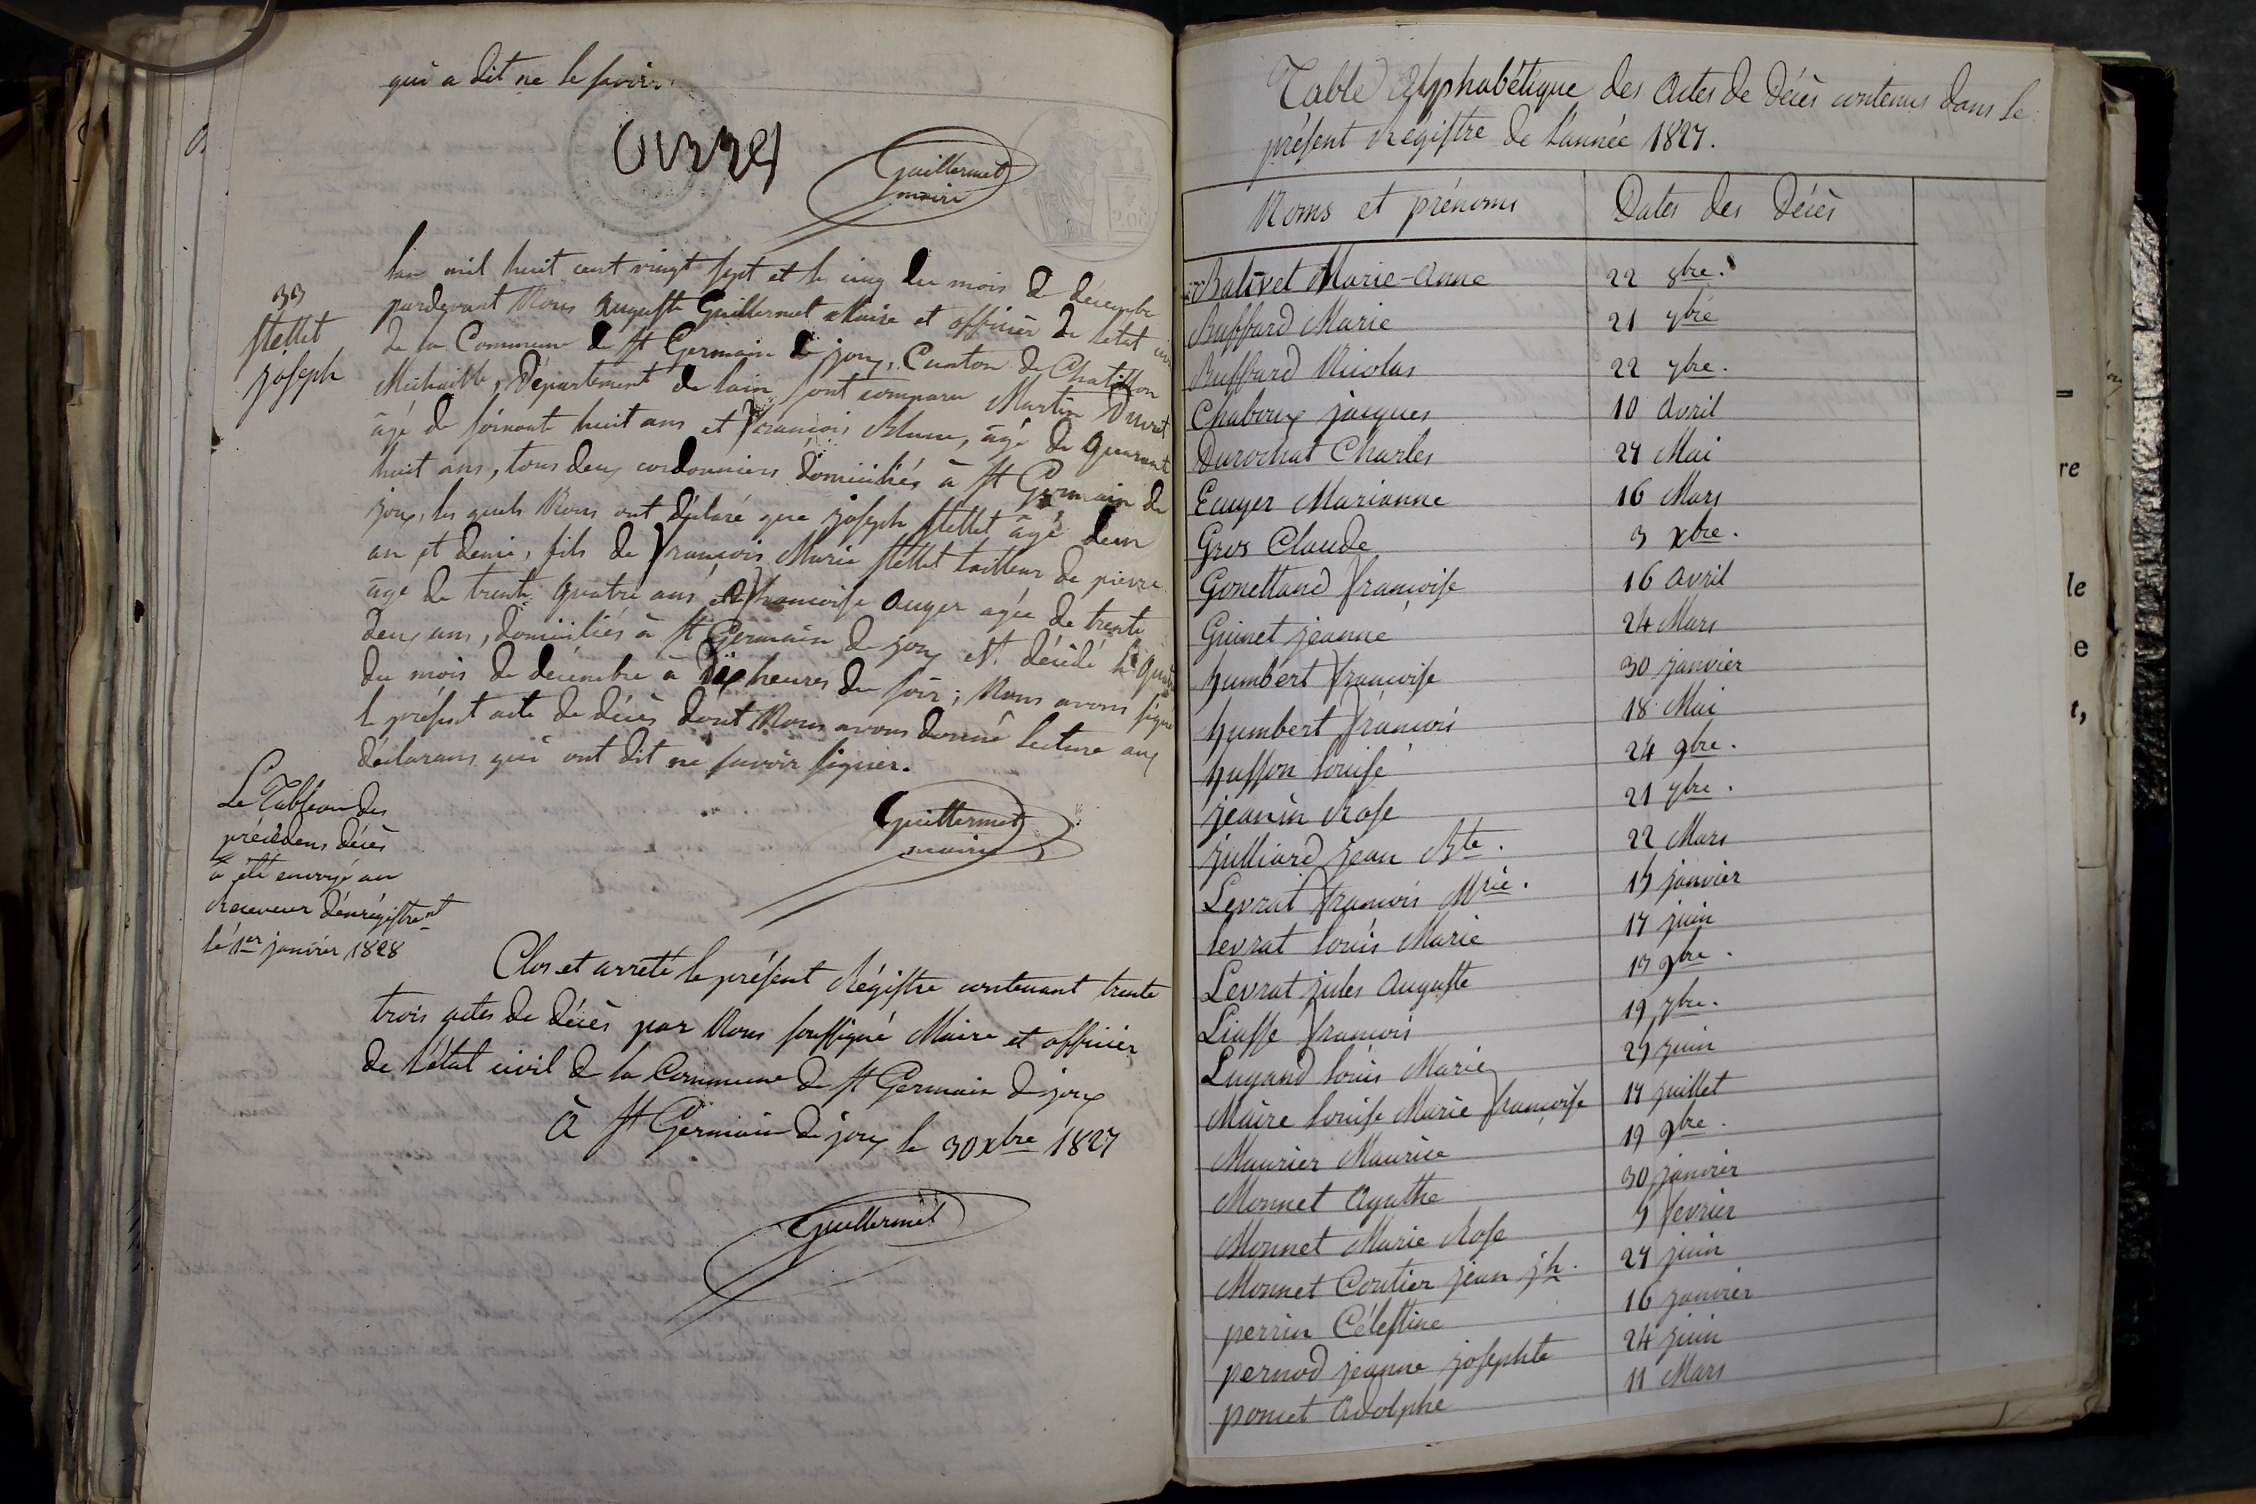 qui a dit ne le savoir
Guillermet
maire
33
Mettet
joseph
Lan mil huit cent vingt sept et le cinq du mois de décembre
pardevant Nous Auguste Guillermet Maire et officier de letat
de la Commune de St Germain de joux, Canton de Chatillon
Michaille, Département de lain sont comparu Martin Durat
âgé de soixante huit ans et françois Blanc, âgé de quarante
huit ans, tous deux cordonniers domiciliés à St Germain de
joux, les quels Nous ont déclaré que joseph Mettet âgé deun
an et demi, fils de françois Marie Mettet tailleur de pierre
âgé de trente quatre ans et françoise auger agée de trente
deux ans, domiciliés à St Germain de joux est décédé le
du mois de décembre à dix heures du soir; Nous avons signé
le présent acte de décès dont Nous avons donné lecture aux
déclarans qui ont dit ne savoir signer.
Guillermet
maire
Le Tableau des
précédens décès
a été envoyé au
Receveur d'enrégistremt
le 1er janvier 1828
Clos et arreté le présent Régistre contenant trente
trois actes de décès par Nous soussigné Maire et officier
de l'état civil de la Commune de St Germain de joux
à St Germain de joux le 30 xbre 1827
Guillermet
Table Alphabétique des Actes de Décès contenus dans le
présent Régistre de l'année 1827.
Noms et prénoms Dates des Décès
Balivet Marie-Anne 22 8bre.
Buffard Marie 21 7bre
Buffard Nicolas 22 7bre.
Chaboux jacques 10 avril
Durochat Charles 27 Mai
Ecuyer Marianne 16 Mars
Gros Claude 3 xbre.
Gonettand françoise 16 avril
Guinet jeanne 24 Mars
humbert françoise 30 janvier
humbert françois 18 Mai
husson louise 24 9bre.
jeanin Rose 21 7bre.
julliard jean Bte. 22 Mars
Levrat françois Mrie. 15 janvier
levrat louis Marie 17 juin
Levrat jules Auguste 13 9bre.
Liasse françois 19 7bre.
Lugand louis Marie 25 juin
Maire louise Marie françoise 17 juillet
Maurier Maurice 19 9bre.
Monnet Agathe 30 janvier
Monnet Marie Rose 5 fevrier
Monnet Coutier jean jh. 27 juin
perrin Célestine 16 janvier
pernod jeanne josephte 24 juin
poncet Adolphe 11 Mars
re
le
e
t,